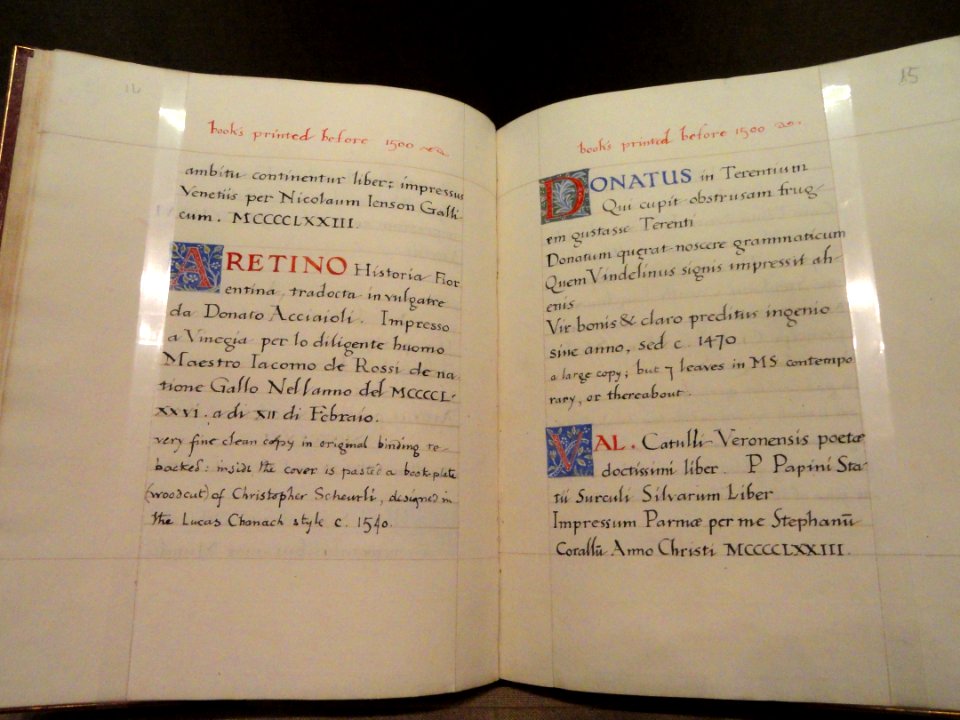 books printed before 1500
ambitu continentur liber; impressus
Venetiis per Nicolaum Ienson Galli
cum. MCCCCLXXIII.
ARETINO Historia Fior
entina, tradocta in vulgatre
da Donato Acciaioli. Impresso
a Vinegia per lo diligente huomo
Maestro Iacomo de Rossi de na
tione Gallo Nellanno del MCCCCL
XXVI. a di XII di Febraio.
very fine clean copy in original binding re-
backed: inside the cover is pasted a book-plate
(woodcut) of Christopher Scheurli, designed in
the Lucas Chanach style c. 1540.
15
books printed before 1500
DONATUS in Terentium
Qui cupit obstrusam frug-
em gustasse Terenti
Donatum querat noscere grammaticum
Quem Vindelinus signis impressit ah-
enis
Vir bonis & claro preditus ingenio
sine anno, sed c. 1470
a large copy; but 7 leaves in MS contempo
rary, or thereabout.
VAL. Catulli Veronensis poetæ
doctissimi liber. P Papini Sta-
tii Surculi Silvarum Liber
Impressum Parmæ per me Stephanū
Corallū Anno Christi MCCCCLXXIII.